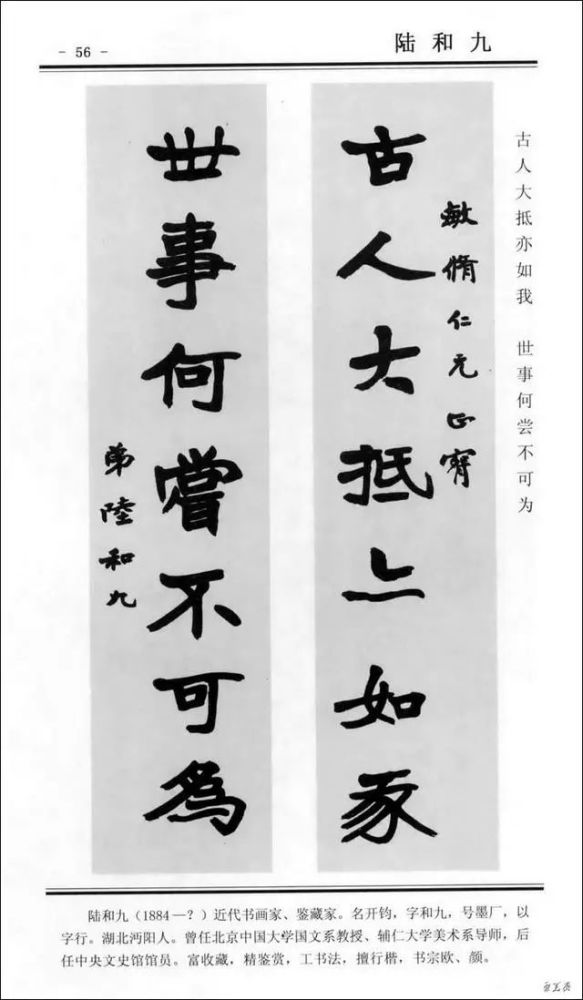 - 56 -
陆和九
古人大抵亦如我　世事何尝不可为
敏脩仁兄正
古人大抵亦如我
世事何嘗不可爲
弟陸和九
陆和九（1884—？）近代书画家、鉴藏家。名开钧，字和九，号墨厂，以
字行。湖北沔阳人。曾任北京中国大学国文系教授、辅仁大学美术系导师，后
任中央文史馆馆员。富收藏，精鉴赏，工书法，擅行楷，书宗欧、颜。